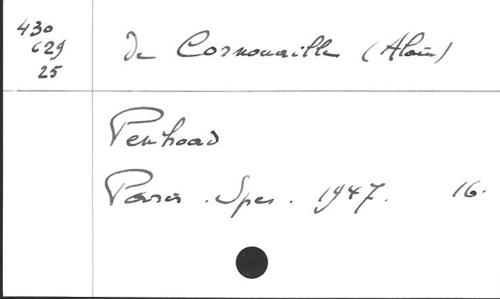 430
629
25
De Cornouaille (Alain)
Penhoad
Paris . Spes . 1947. 16.